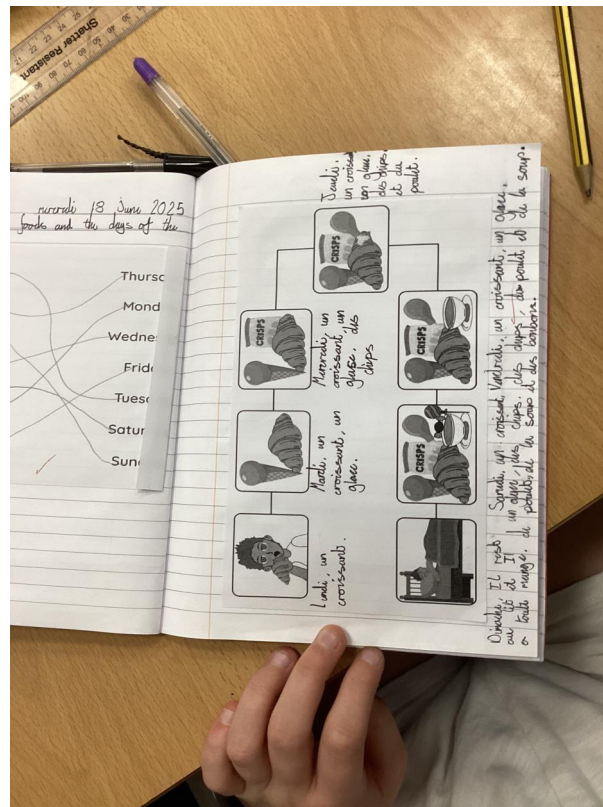 Shatter Resistant
mercredi 18 June 2025
foods and the days of the
Thursd
Mond
Wednes
Frida
Tuesd
Satur
Sund
Lundi, un
croissant.
Mardi, un
croissant, un
glase.
Mercredi, un
croissant, un
glase, des
chips
CRISPS
Jeudi,
un croissa
un glase,
des chips.
et du
poulet.
CRISPS
Vendredi, un croissant, un glase,
des chips, du poulet et de la soup.
CRISPS
Samdi, un croissant
un glase, des chips.
de poulet, de la soup et des bonbons.
CRISPS
Dimache, Il rest
au lit et Il
a toute mange.